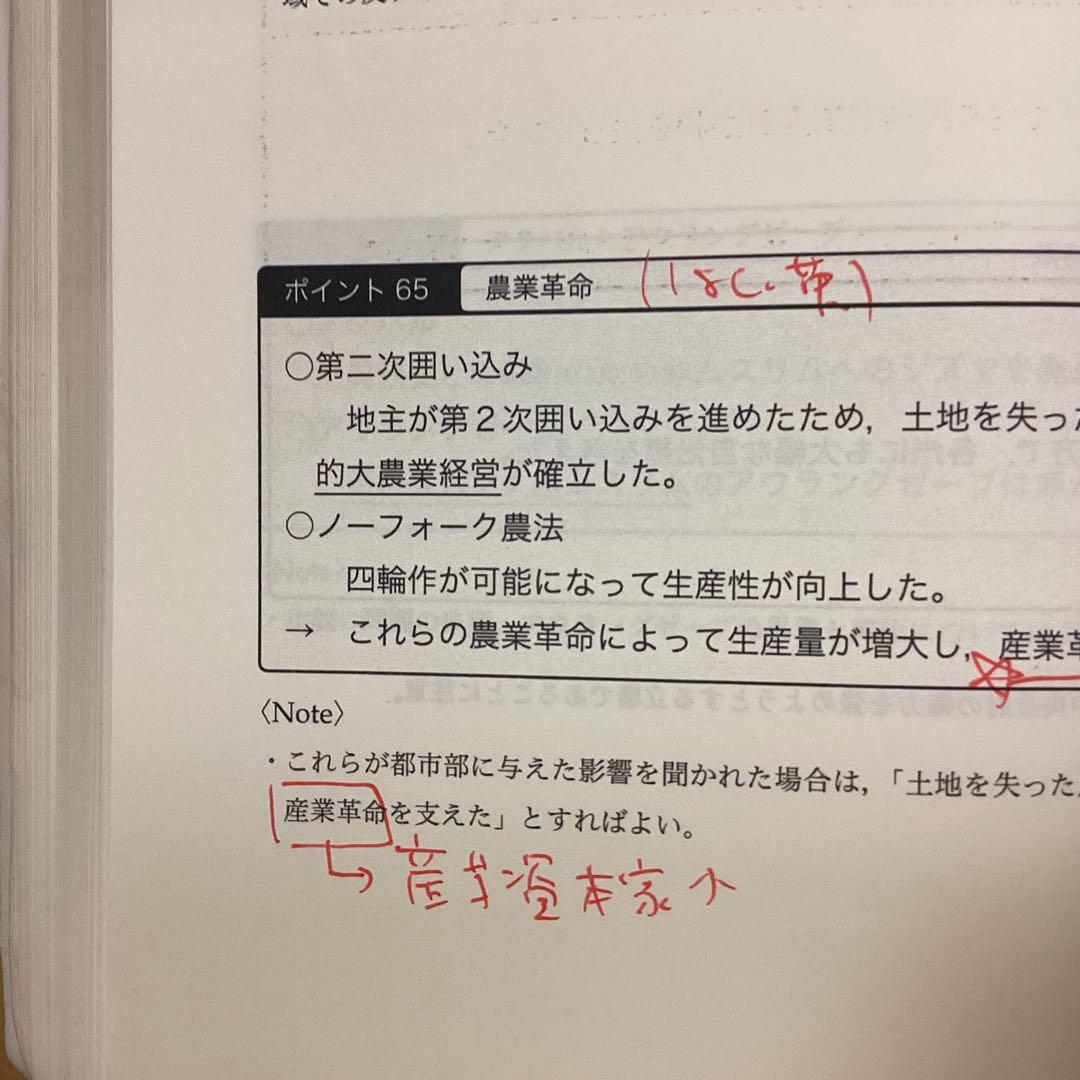 ポイント 65 農業革命 (18C. 英)
○第二次囲い込み
地主が第2次囲い込みを進めたため，土地を失った
的大農業経営が確立した。
○ノーフォーク農法
四輪作が可能になって生産性が向上した。
→ これらの農業革命によって生産量が増大し，産業革
〈Note〉
・これらが都市部に与えた影響を聞かれた場合は，「土地を失った
産業革命を支えた」とすればよい。
産業資本家